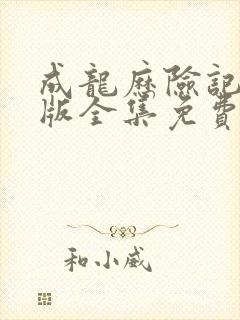 成龍歷險記
版全集免費
和小威